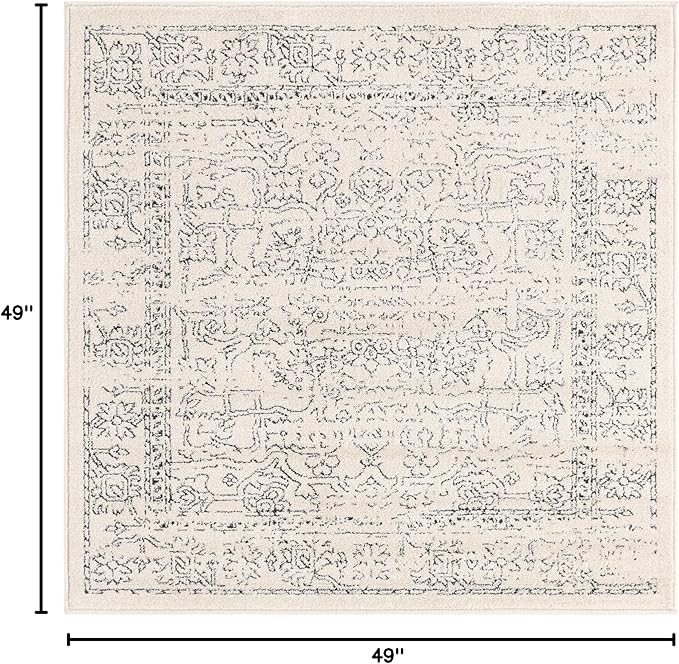 49"
49"